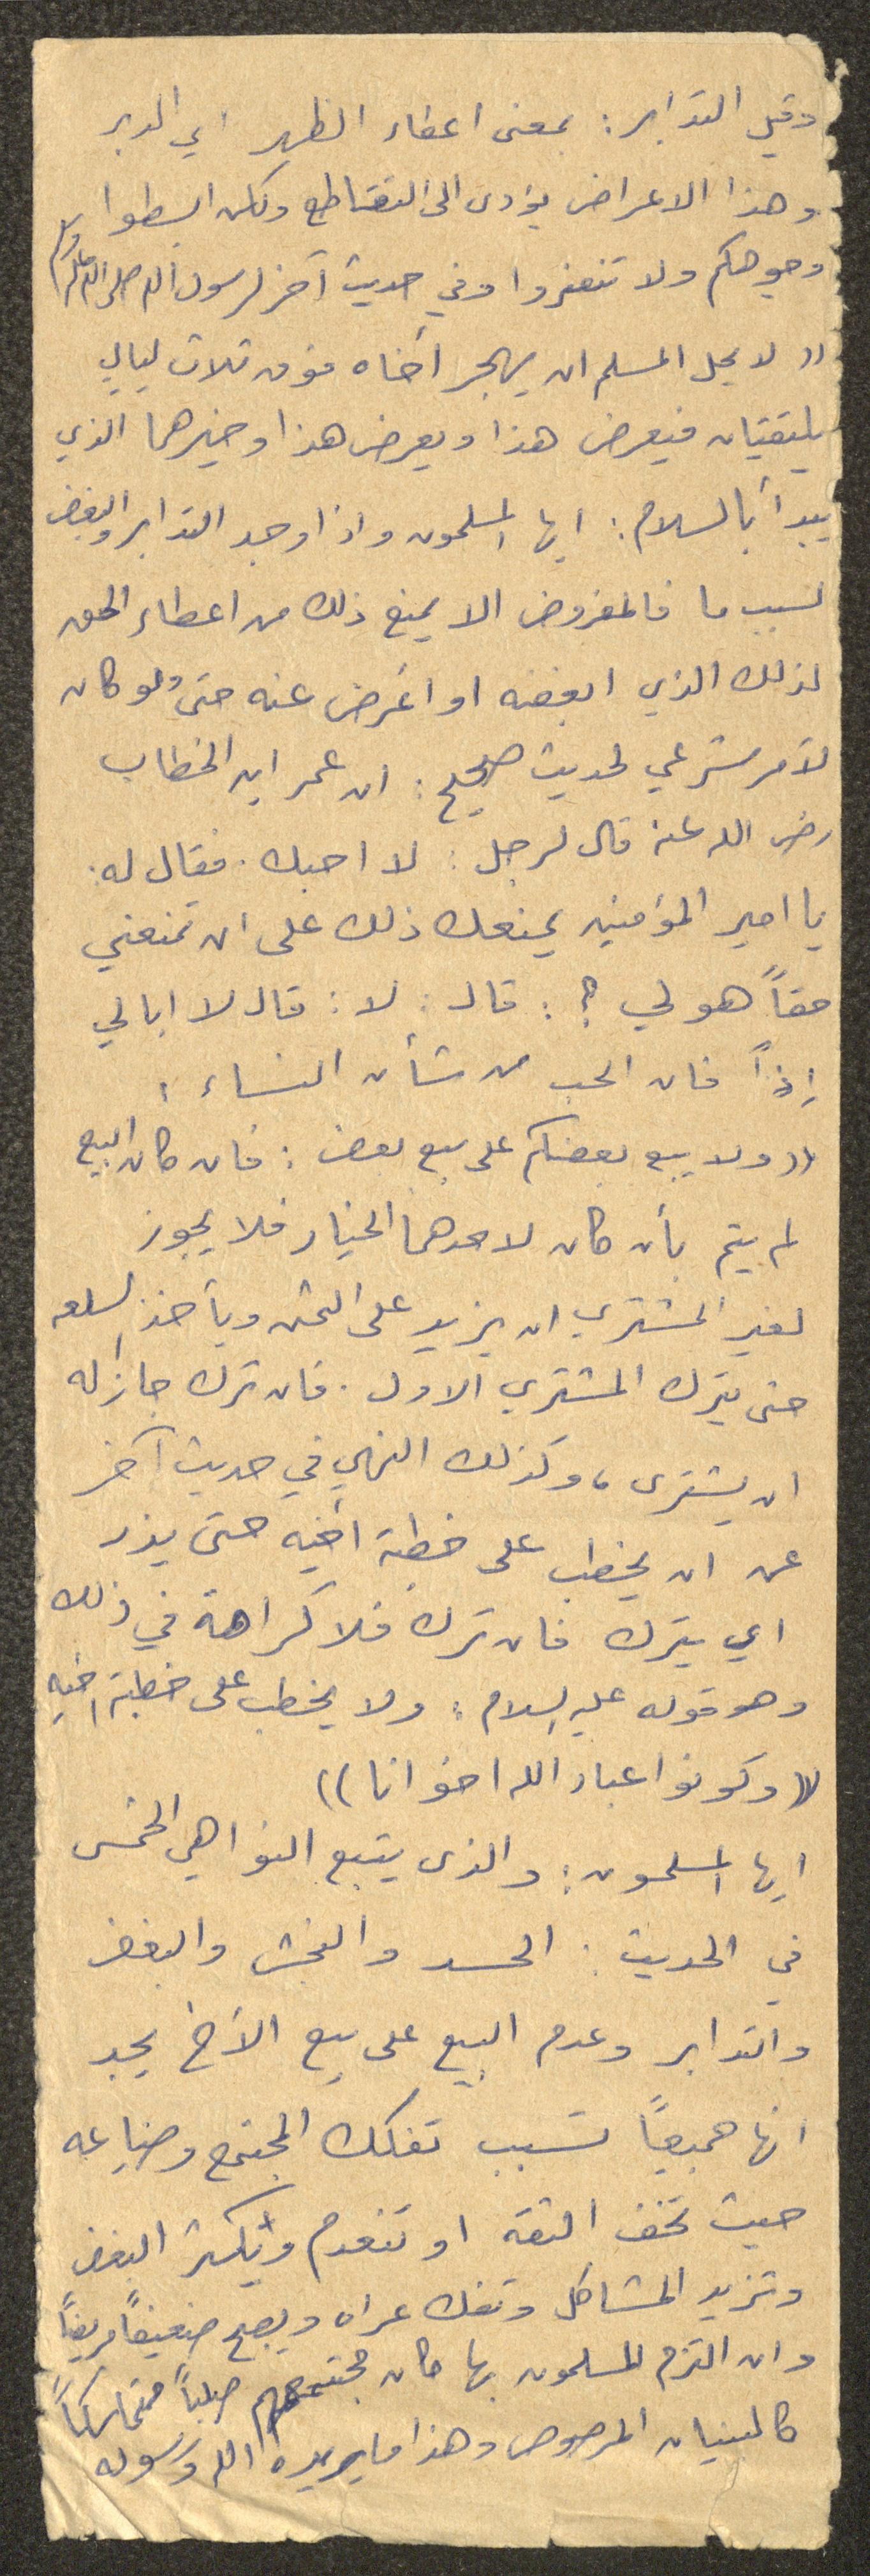 وقيل التدابر: بمعنى اعطاء الظهر اي الدبر
وهذا الاعراض يؤدى الى التقاطع ولكن ابسطوا
وجوهكم ولا تنفروا وفي حديث آخر لرسول الله صلى الله عليه وسلم
(( لا يحل المسلم ان يهجر أخاه فوق ثلاث ليالي
يلتقيان فيعرض هذا ويعرض هذا وخيرهما الذي
يبدأ بالسلام: ايها المسلمون واذا وجد التدابر والبغض
لسبب ما فالمفروض الا يمنع ذلك من اعطاء الحق
لذلك الذي ابغضه او اعرض عنه حتى ولو كان
لأمر شرعي لحديث صحيح: ان عمر ابن الخطاب
رضى الله عنه قال لرجل: لا احبك. فقال له:
يا امير المؤمنين يمنعك ذلك على ان تمنعني
حقاً هو لي ؟: قال: لا: قال لا ابالي
إذاً فان الحب من شأن النساء:
(( ولا يبع بعضكم على بيع بعض: فان كان البيع
لم يتم بأن كان لاحدهما الخيار فلا يجوز
لغير المشتري ان يزيد على الثمن ويأخذ السلعه
حتى يترك المشتري الاول. فان ترك جاز له
ان يشترى، وكذلك النهي في حديث آخر
عن ان يخطب على خطبة أخيه حتى يذر
اي يترك فان ترك فلا كراهة في ذلك
وهو قوله عليه السلام: ولا يخطب على خطبة اخيه
(( وكونوا عباد الله اخوانا ))
ايها المسلمون: والذى يتبع النواهي الخمس
في الحديث: الحسد والنجش والبغض
والتدابر وعدم البيع على بيع الأخ يجد
انها جميعاً تسبب تفكك المجتمع وضياعه
حيث تخف الثقة او تنعدم ويكثر البغض
وتزيد المشاكل وتفك عراه ويصبح ضعيفاً مريضاً
وان التزم المسلمون بها كان مجتمعهم صلباً متماسكاً
كالبنيان المرصوص وهذا ما يريده الله ورسوله